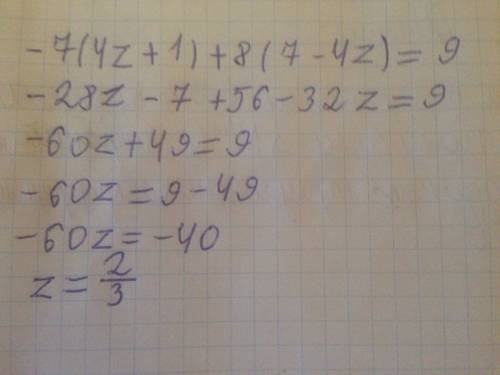 -7(4z+1)+8(7-4z)=9
-28z-7+56-32z=9
-60z+49=9
-60z=9-49
-60z=-40
z=2/3